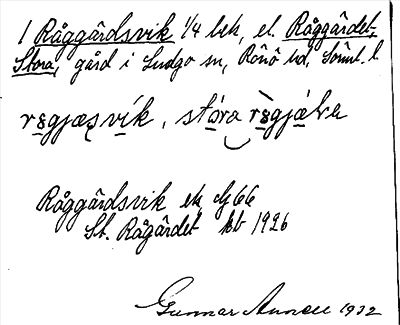 1 Råggårdsvik 1/4 bek, el. Råggårdet-
Stora, gård i Ludgo sn, Rönö hd, Söml. l.
rågjæsvík, stóra rågjæ̀ɫa
Råggårdsvik ek bl 66
St. Rågårdet kb 1926
Gunnar Annell 1932